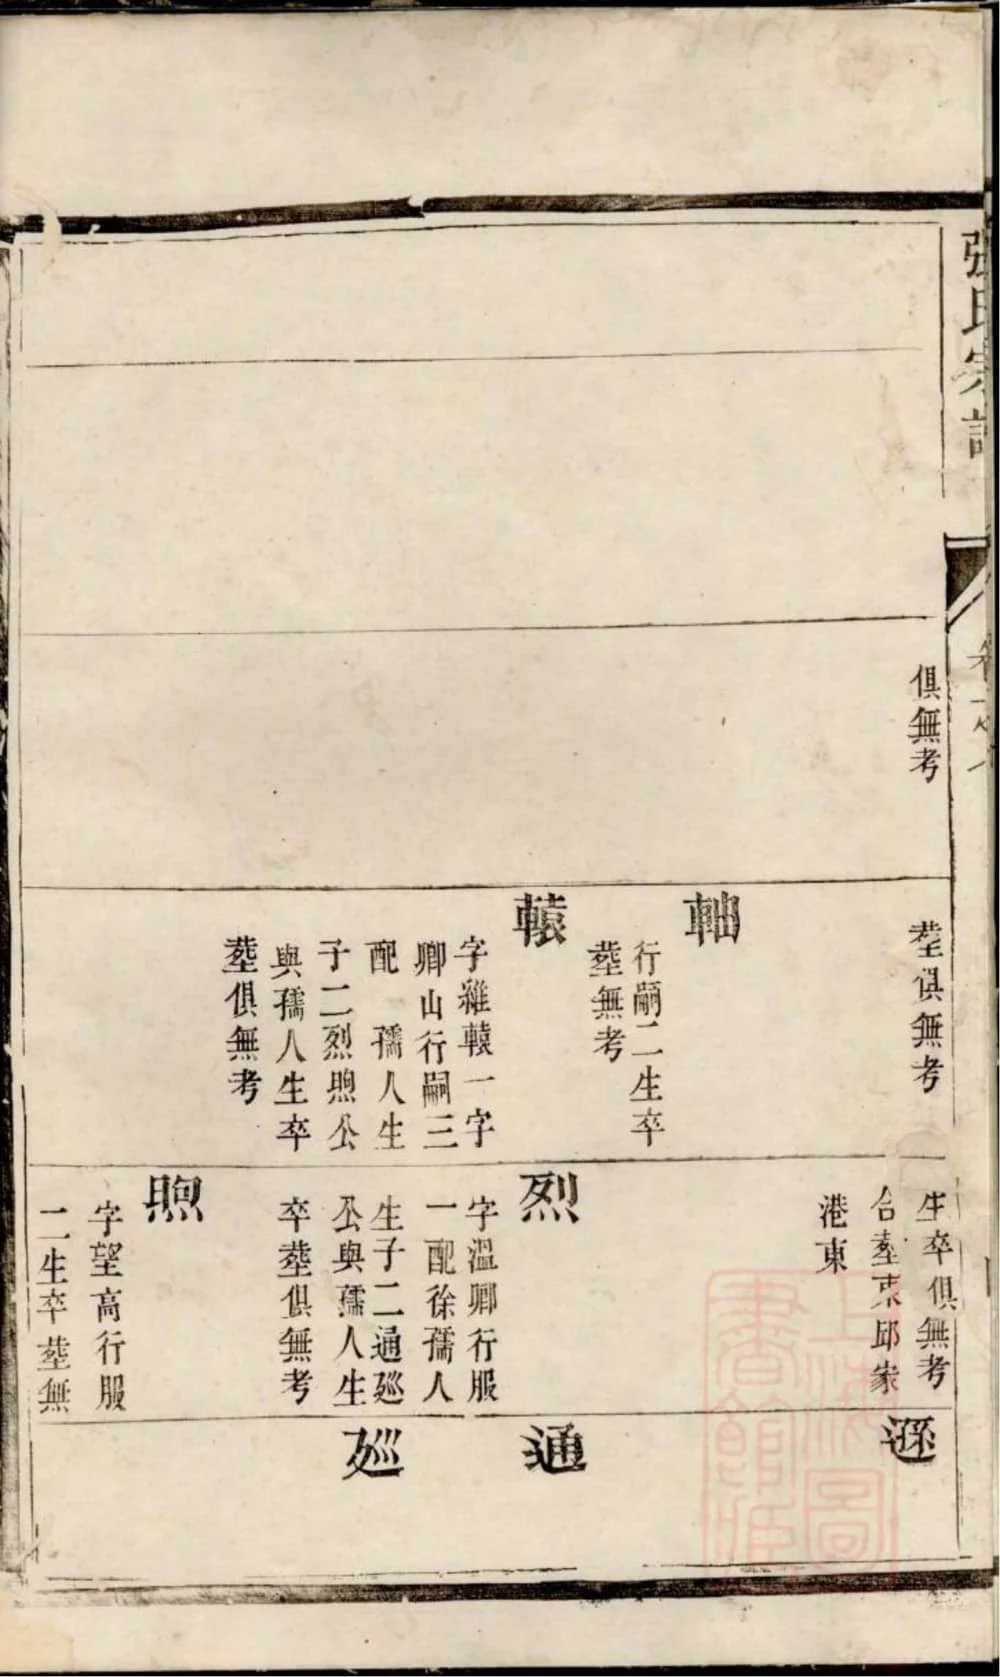 張氏宗譜
俱無考
塟俱無考
軸
行嗣二生卒
塟無考
轅
字雍轅一字
卿山行嗣三
配　孺人生
子二烈煦公
與孺人生卒
塟俱無考
生卒俱無考
合塟東邱家
港東
烈
字溫卿行服
一配徐孺人
生子二通廵
公與孺人生
卒塟俱無考
煦
字望高行服
二生卒塟無
遜
通
廵
上海圖書館藏